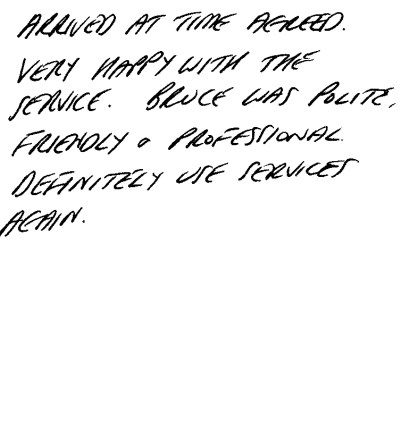 ARRIVED AT TIME AGREED.
VERY HAPPY WITH THE
SERVICE. BRUCE WAS POLITE,
FRIENDLY & PROFESSIONAL.
DEFINITELY USE SERVICES
AGAIN.